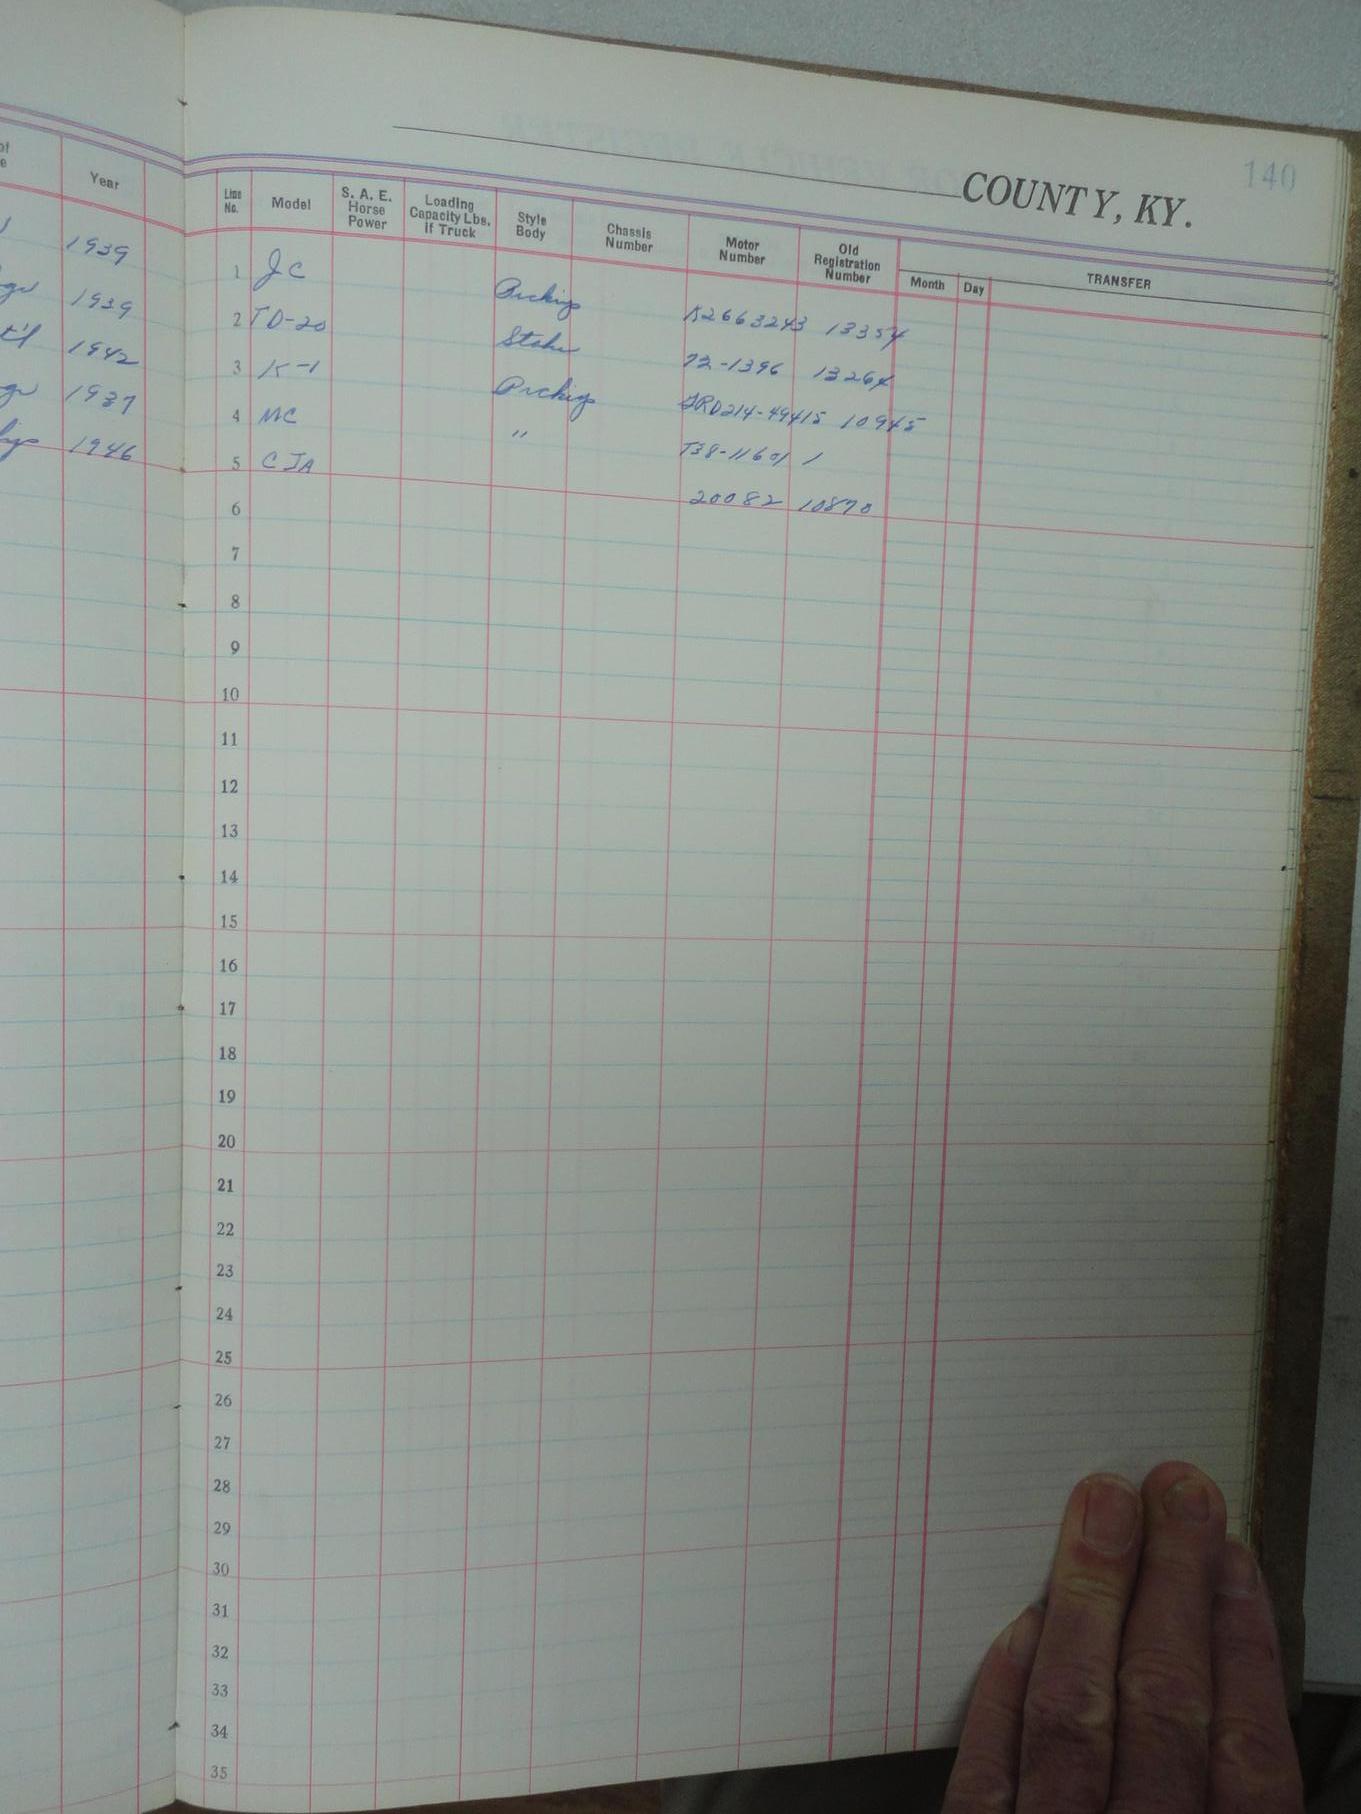 140
COUNTY, KY.
Year
Line No. Model S. A. E. Horse Power Loading Capacity Lbs. if Truck Style Body Chassis Number Motor Number Old Registration Number Month Day TRANSFER
1939
1939
1942
1937
1946
1 JC Pickup K2663243 13354
2 TD-20 Stake 72-1396 13264
3 K-1 Pickup GRD214-49415 10945
4 MC " T38-11601 1
5 CJA 20082 10870
6
7
8
9
10
11
12
13
14
15
16
17
18
19
20
21
22
23
24
25
26
27
28
29
30
31
32
33
34
35